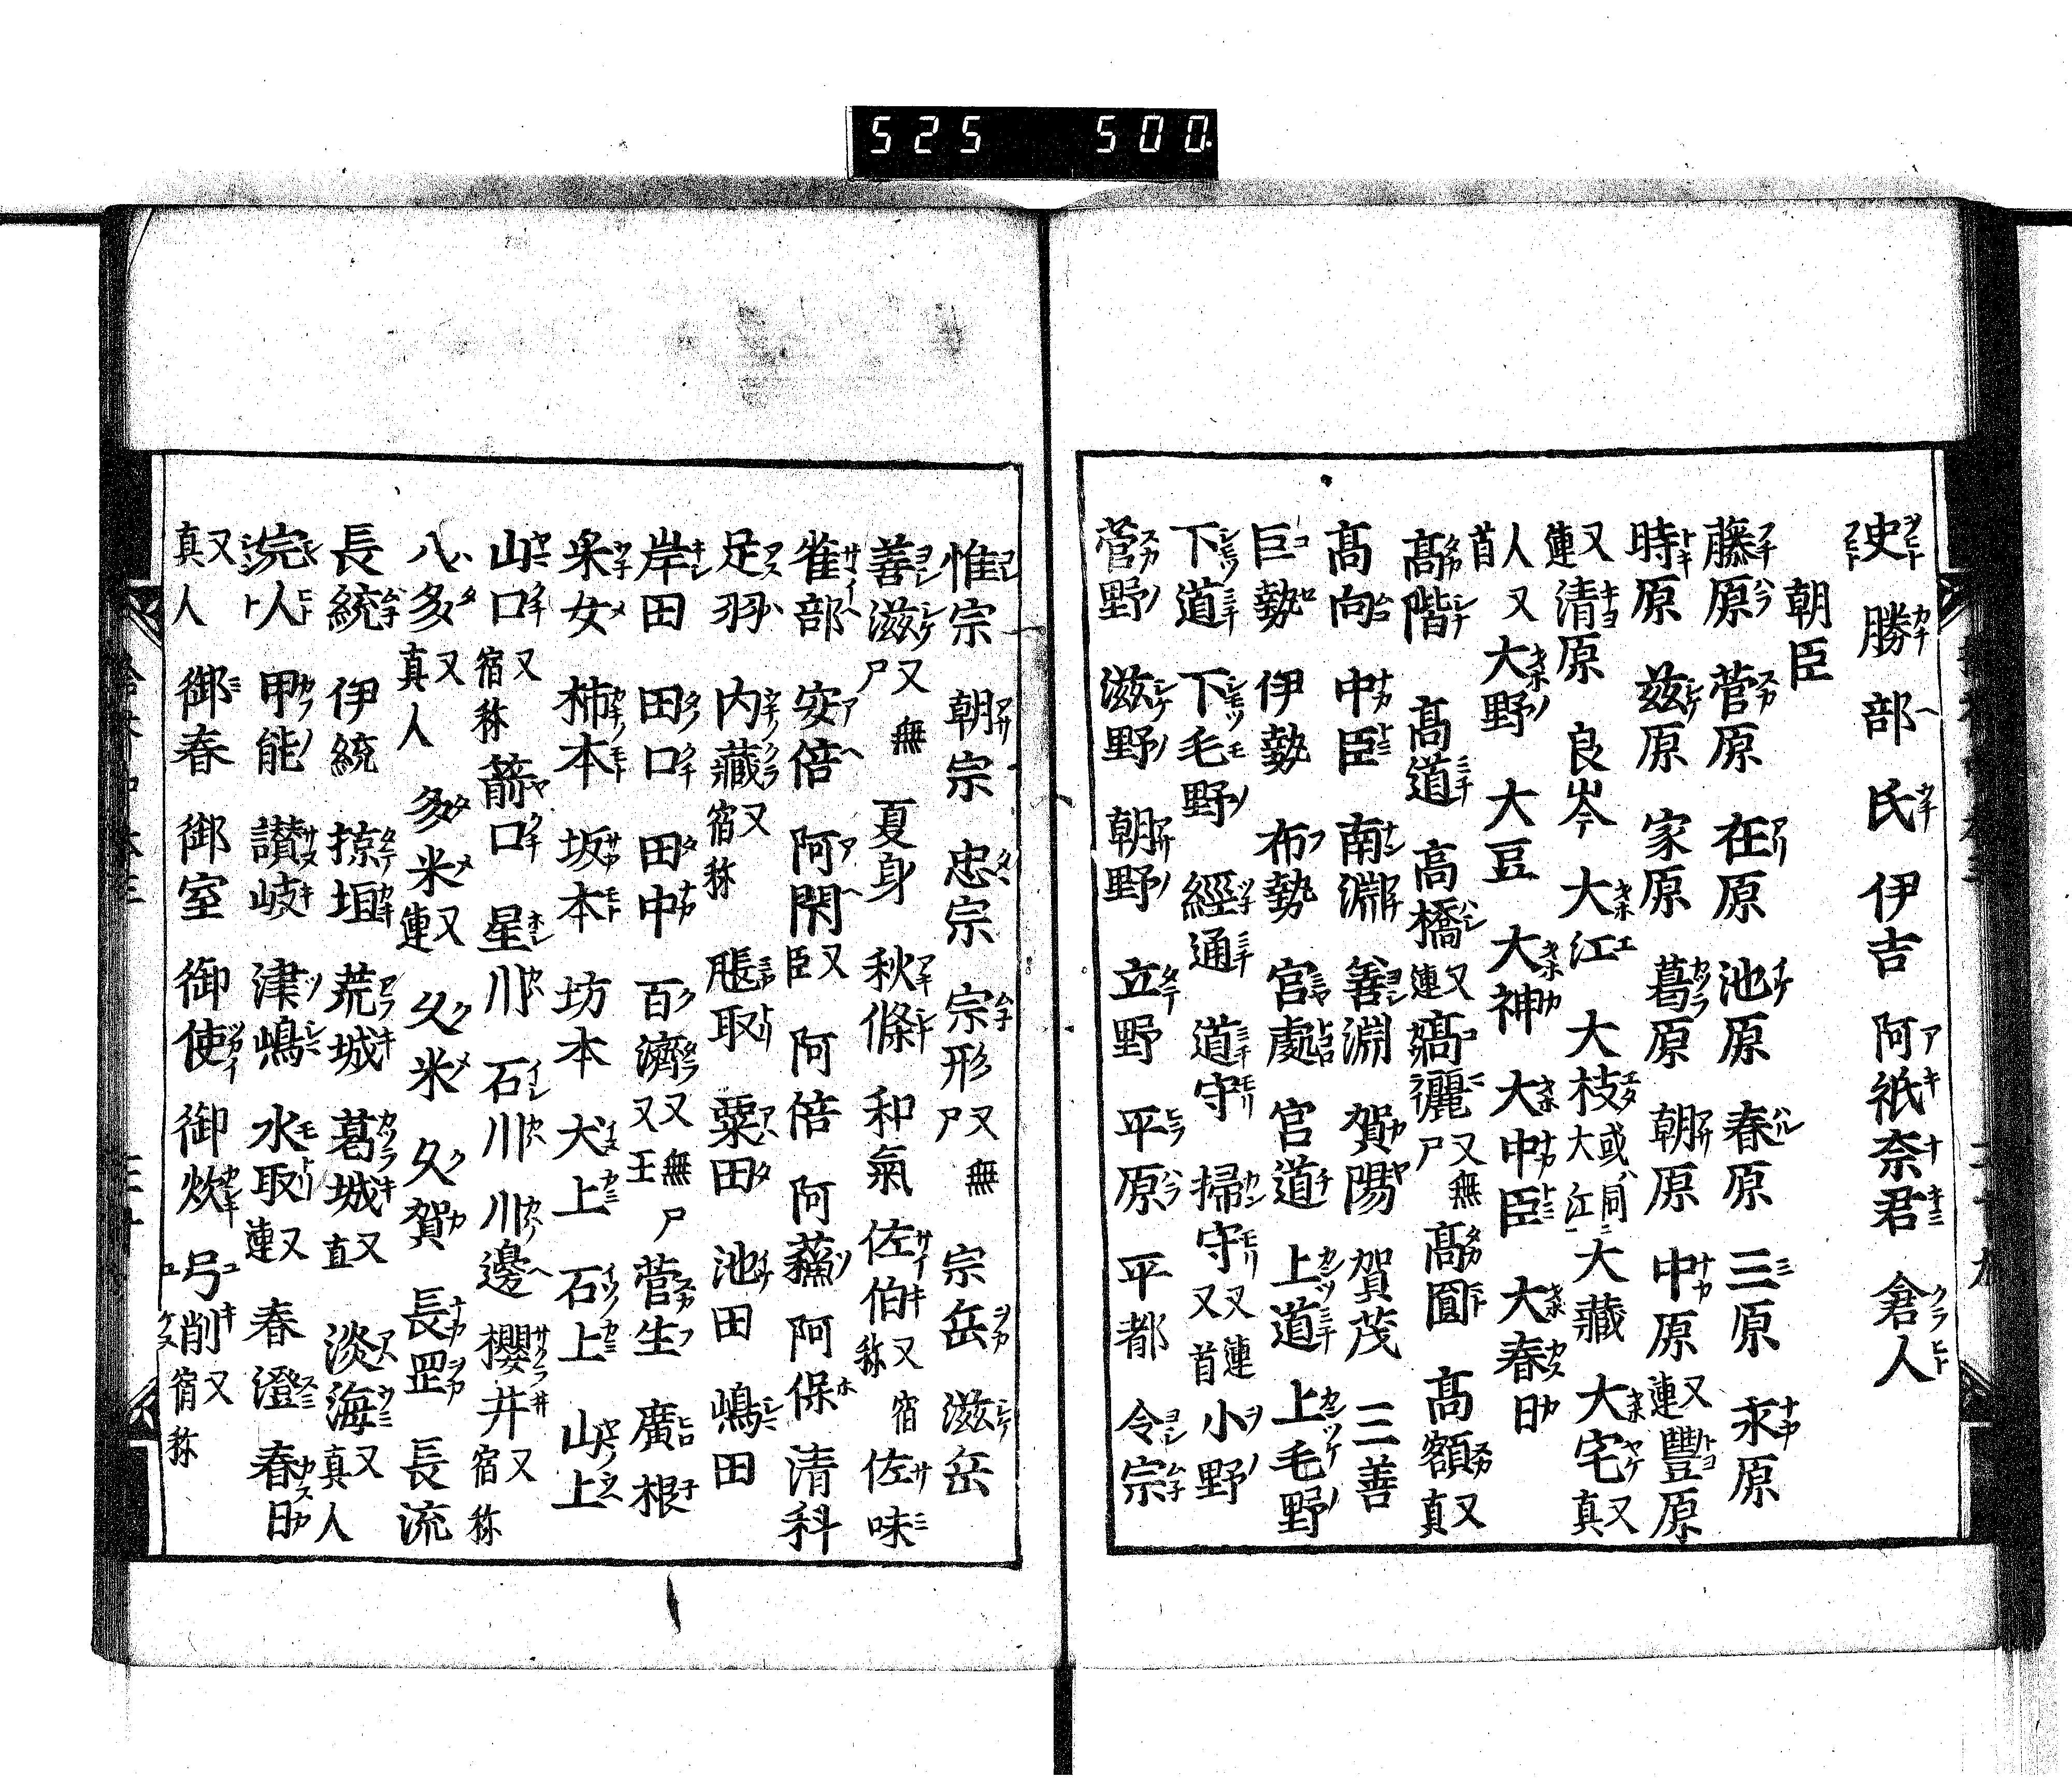 525 500.
史 勝 部 氏 伊吉 阿祇奈君 倉人
朝臣
藤原 菅原 在原 池原 春原 三原 永原
時原 兹原 家原 葛原 朝原 中原又連 豐原
又連 清原 良岑 大江 大枝或同大江 大藏 大宅又真
人又首 大野 大豆 大神 大中臣 大春日
高階 高道 高橋又連 高麗又無尸 高圓 高額又真
高向 中臣 南淵 善淵 賀陽 賀茂 三善
巨勢 伊勢 布勢 官處 官道 上道 上毛野
下道 下毛野 經通 道守 掃守又連又首 小野
菅野 滋野 朝野 立野 平原 平都 令宗
惟宗 朝宗 忠宗 宗形又無尸 宗岳 滋岳
善滋又無尸 夏身 秋條 和氣 佐伯又宿祢 佐味
雀部 安倍 阿閇又臣 阿倍 阿蘓 阿保 清科
足羽 内藏又宿祢 取 粟田 池田 嶋田
岸田 田口 田中 百濟又無尸又王 菅生 廣根
采女 柿本 坂本 坊本 犬上 石上 山上
山口又宿祢 箭口 星川 石川 川邊 櫻井又宿祢
八多又真人 多米又連 久米 久賀 長罡 長流
長統 伊統 掠垣 荒城 葛城又直 淡海又真人
完人 甲能 讃岐 津嶋 水取又連 春澄 春日
又真人 御春 御室 御使 御炊 弓削又宿祢